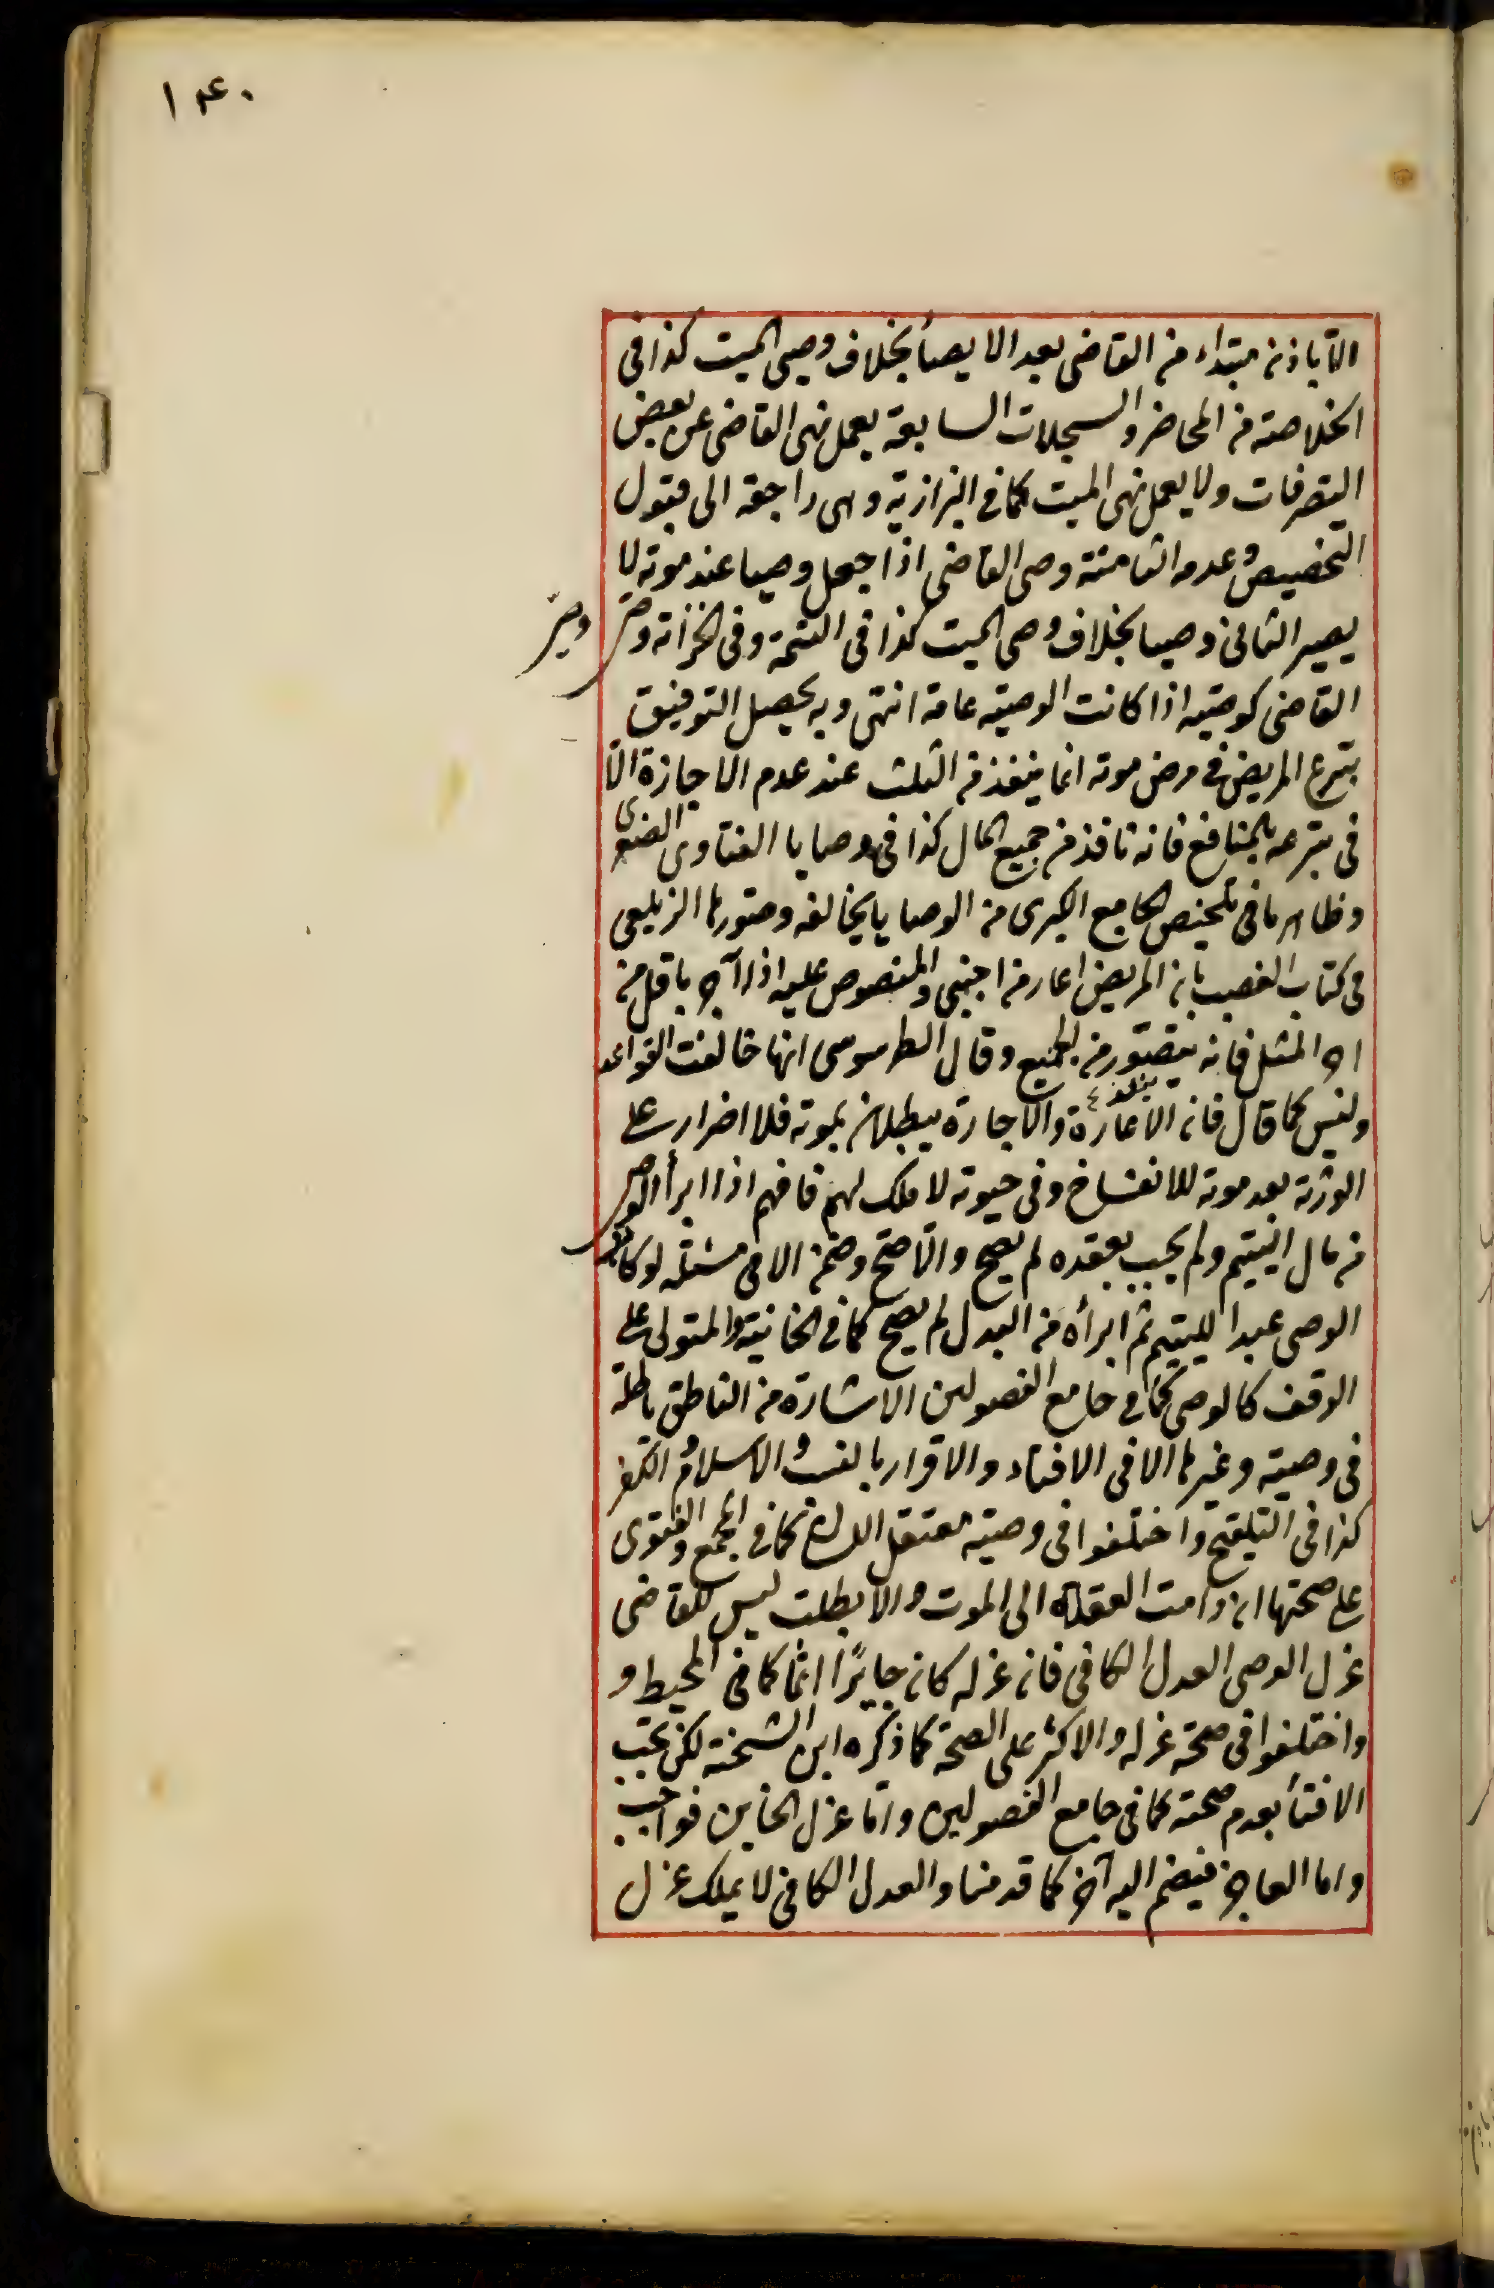 ١٤٠
الا باذن مبتداء من القاضى بعد الايصأ بخلاف وصى الميت كذا فى
الخلاصة من المحاضر والسجلات السابعة يعمل نهى القاضى عن بعض
التصرفات ولا يعمل نهى الميت كما فى البزازية وهى راجعة الى قبول
التخصيص وعدمه الثامنة وصى القاضى اذا جعل وصيا عند موته لا
يصير الثانى وصيا بخلاف وصى الميت كذا فى التتمة وفى الخزانة وصى
وصى
القاضى كوصيه اذا كانت الوصية عامة انتهى وبه يحصل التوفيق
تبرع المريض فى مرض موته انما ينفذ من الثلث عند عدم الاجازة الا
فى تبرعه بالمنافع فانه نافذ من جميع المال كذا فى وصايا الفتاوى الصغرى
وظاهر ما فى تلخيص الجامع الكبرى من الوصايا يخالفه وصورها الزيلعى
فى كتاب الغصب بان المريض اعار من اجنبى والمنصوص عليه اذا آجر باقل من
اجر المثل فانه ينفذ من الجميع وقال الطرسوسى انها خالفت القواعد
وليس كما قال فان الاعارة والاجارة يبطلان بموته فلا اضرار على
الورثة بعد موته للانفساخ وفى حيوته لا ملك لهم فافهم اذا ابرأ الوصى
من مال اليتيم ولم يجب بعقده لم يصح والا صح وضمن الا فى مسئلة لو كاتب
الوصى عبدا لليتيم ثم ابرأه من البدل لم يصح كما فى الخانية والمتولى على
الوقف كالوصى كما فى جامع الفصولين الاشارة من الناطق باطلة
فى وصية وغيرها الا فى الافتاء والاقرار بالنسب والاسلام والكفر
كذا فى التلقيح واختلفوا فى وصية معتقل اللسان كما فى المجمع والفتوى
على صحتها ان دامت العقلة الى الموت والا بطلت ليس للقاضى
عزل الوصى العدل الكافى فان عزله كان جايرا اثما كما فى المحيط و
واختلفوا فى صحة عزله والاكثر على الصحة كما ذكره ابن الشحنة لكن يجب
الافتأ بعدم صحته كما فى جامع الفصولين واما عزل الخاين فواجب
واما العاجز فيضم اليه آخر كما قدمنا والعدل الكافى لا يملك عزل